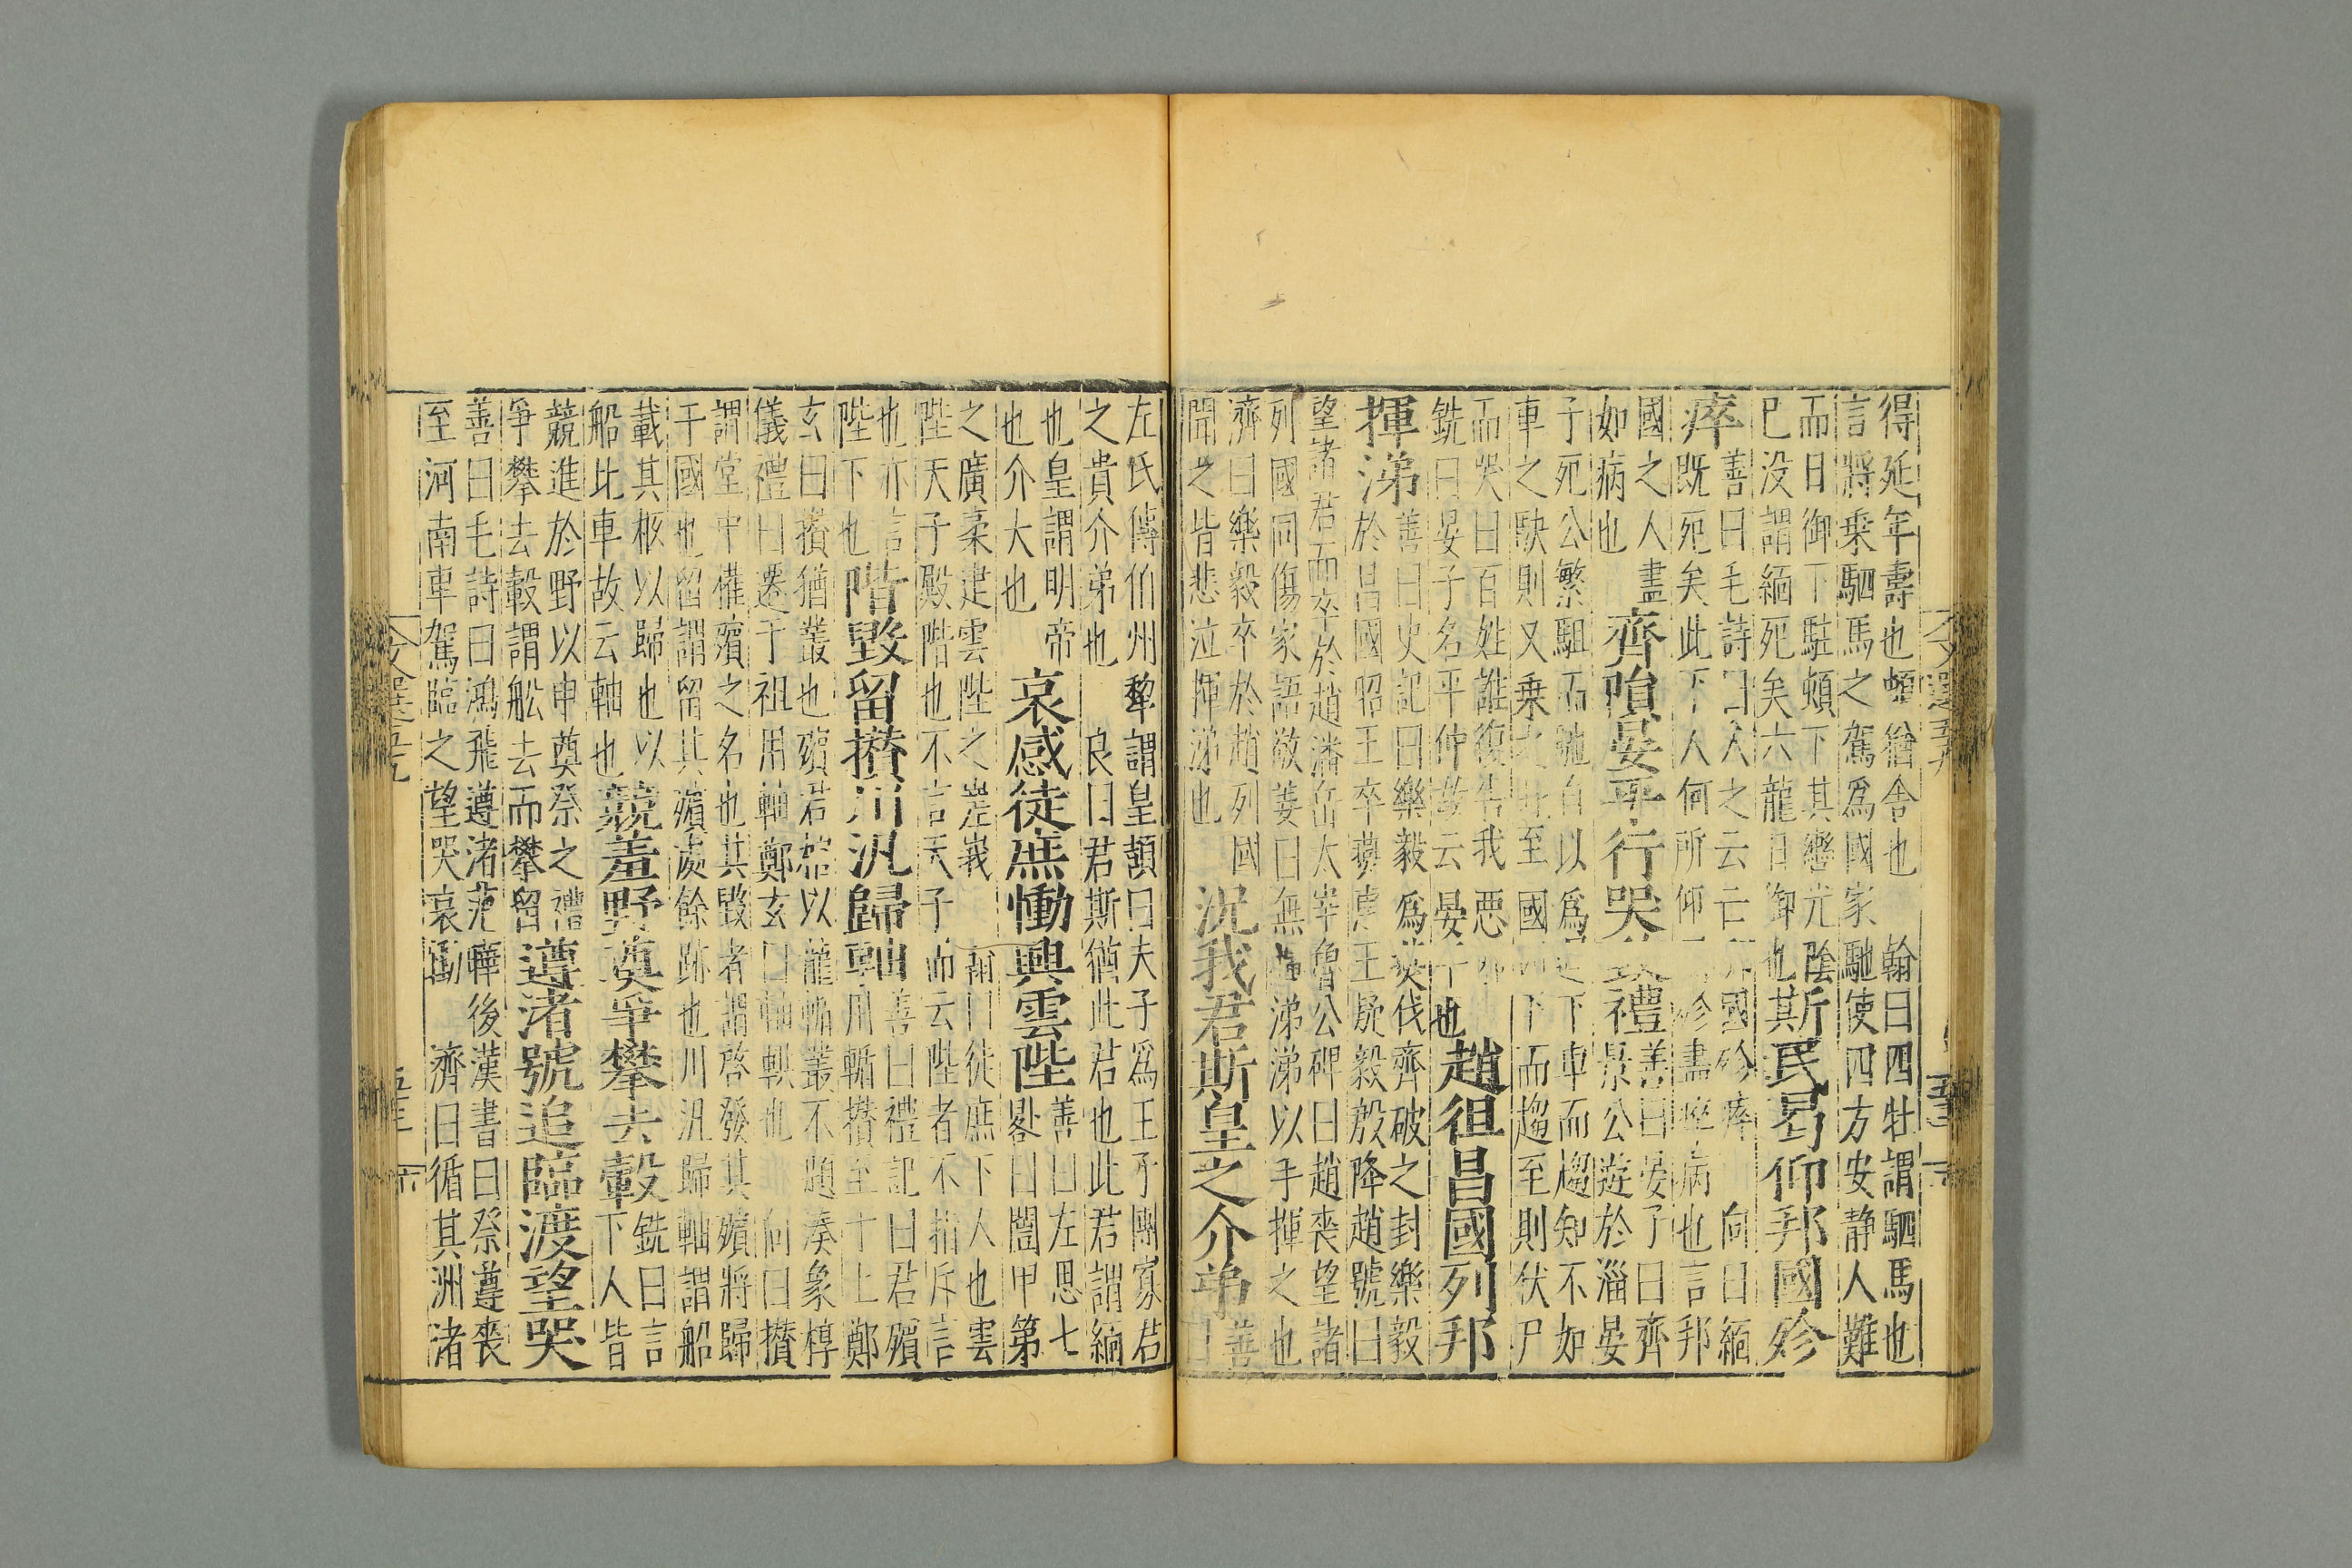 得延年壽也頓猶舍也　翰曰四牡謂駟馬也
言將乗駟馬之駕爲國家馳使四方安静人難
而日御下駐頓下其轡光陰
巳没謂緬死矣六龍日御也其
斯民曷仰邦國殄
瘁
善曰毛詩曰人之云亡國殄瘁　向曰緬
既死矣此下人何所仰殄盡瘁病也言邦
國之人盡
如病也
齊殞晏平行哭禮
善曰晏子曰齊
景公遊於淄晏
子死公繁駔馳自以爲下車而趨知不如
車之駃則又乗至國下而趨至則伏尸
而哭曰百姓誰復告我惡
銑曰晏子名平仲故云晏平也
趙徂昌國列邦
揮涕
善曰史記曰樂毅爲伐齊破之封樂毅
於昌國昭王卒王疑毅毅降趙號曰
望諸君而卒於趙潘岳太宰魯公碑曰趙喪望諸
列國同傷家語敬姜曰無揮涕涕以手揮之也
濟曰樂毅卒於趙列國
聞之皆悲泣揮涕也
況我君斯皇之介弟
善
曰
左氏傳伯州犁謂皇頡曰夫子爲王子圍寡君
之貴介弟也　良曰君斯猶此君也此君謂緬
也皇謂明帝
也介大也
哀感徒庶慟興雲陛
善曰左思七
畧曰闓甲第
之廣袤建雲陛之嵳峩　翰曰徒庶下人也雲
陛天子殿階也不言天子而云陛者不指斥言
也亦言
陛下也
階毀留攅川汎歸軸
善曰禮記曰君殯
用輴攅至于上鄭
玄曰攅猶叢也殯君棺以龍輴叢不題湊象椁
儀禮曰遷于祖用軸鄭玄曰軸輁也　向曰攅
謂堂中㩁殯之名也其毀者謂啓發其殯將歸
于國也留謂留其殯處餘跡也川汎歸軸謂船
載其柩以歸也以
船比車故云軸也
競羞野奠爭攀去轂
銑曰言
下人皆
競進於野以申奠祭之禮
爭攀去轂謂舩去而攀留
遵渚號追臨渡望哭
善曰毛詩曰鴻飛遵渚范曄後漢書曰祭遵喪
至河南車駕臨之望哭哀慟　濟曰循其洲渚